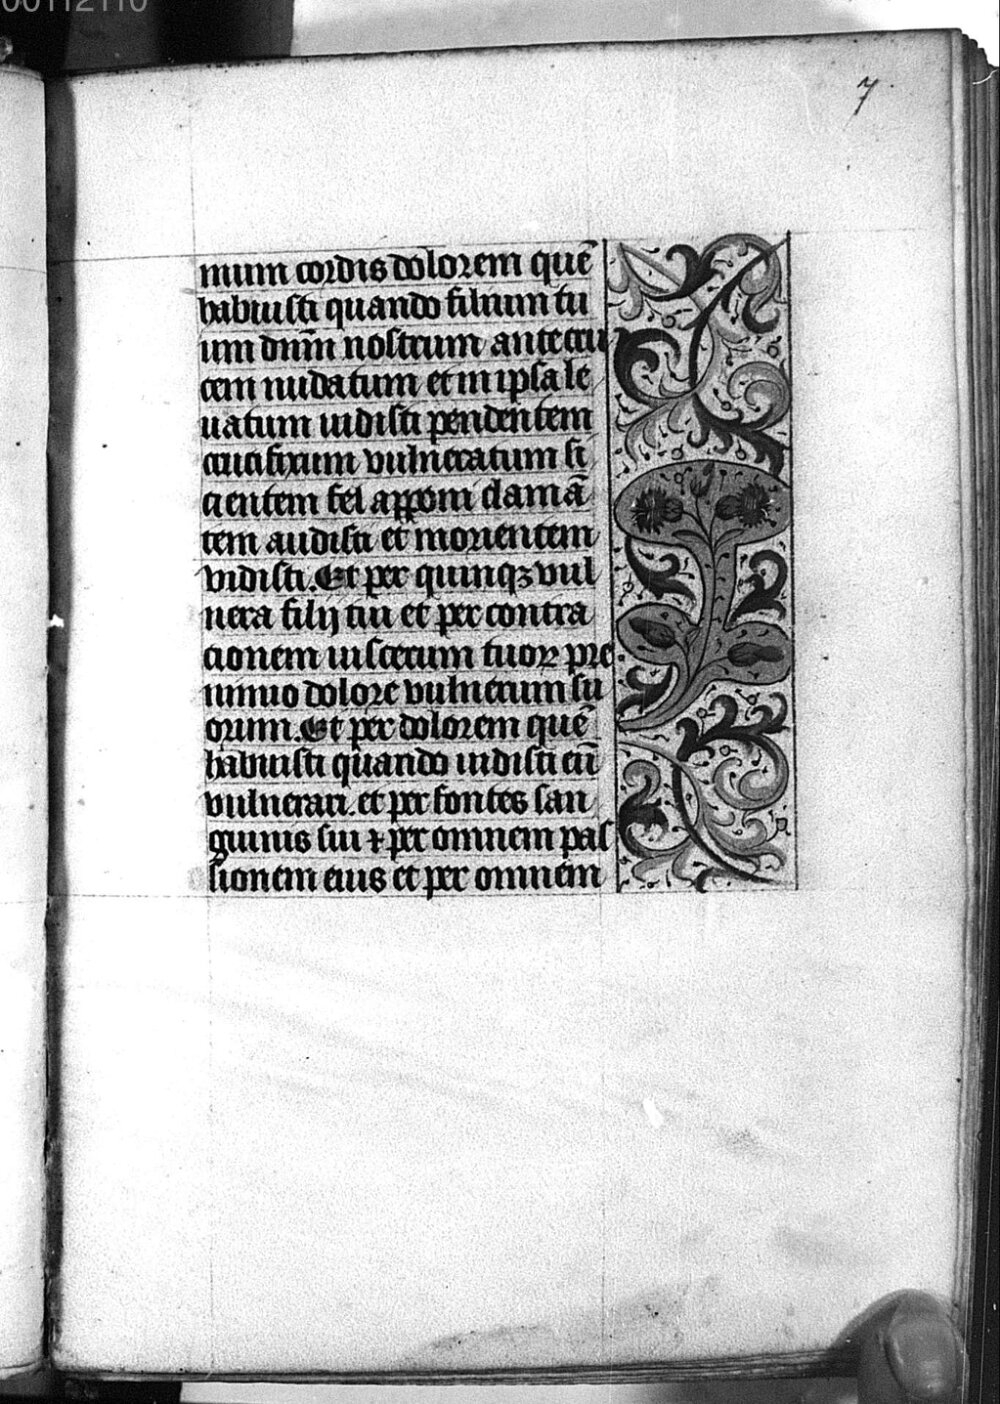 00112110
7
mum cordis dolorem quē
habuisti quando filium tu
um dn̄m nostrum ante cru
cem nudatum et in ipsa le
uatum uidisti pendentem
crucifixum vulneratum si
cientem fel apponi clamā
tem audisti et morientem
vidisti. Et per quinqꝫ vul
nera filij tui et per contra
cionem uiscerum tuoꝝ pre
nimio dolore vulnerum su
orum. Et per dolorem quē
habuisti quando uidisti eū
vulnerari. et per fontes san
guinis sui ⁊ per omnem pas
sionem eius et per omnem